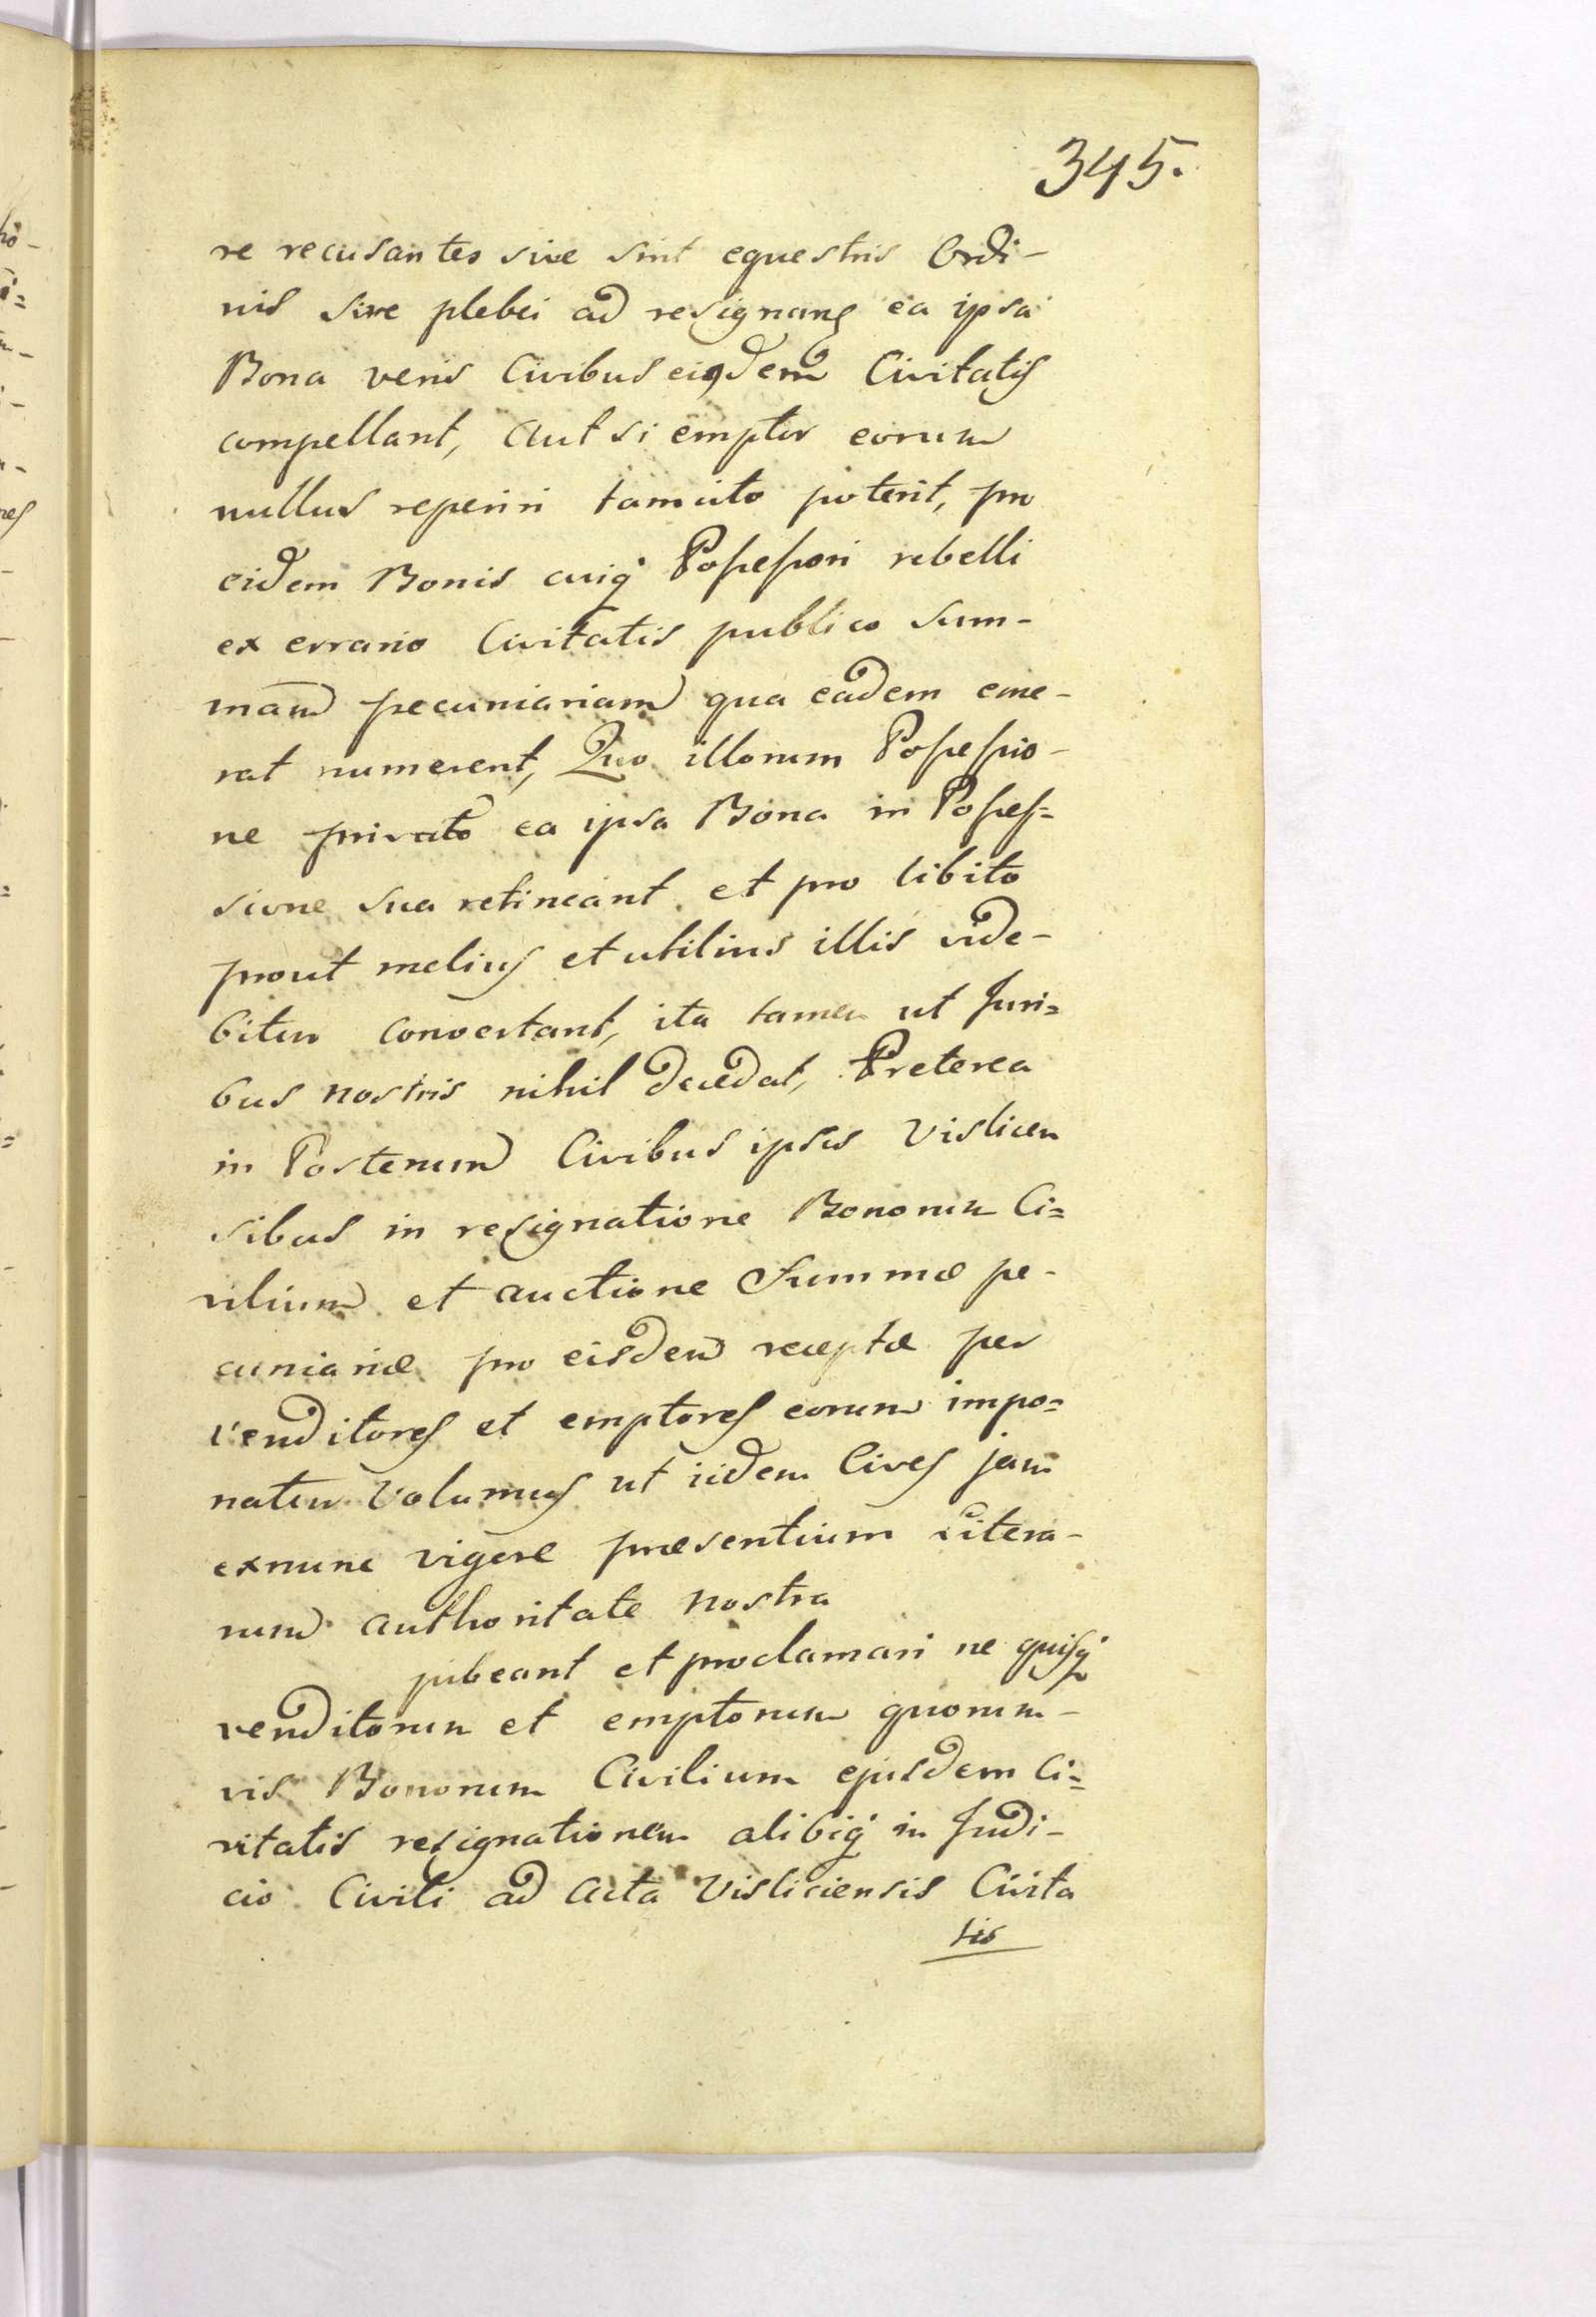 345.
re recusantes sive sint equestris Ordi-
nis sive plebei ad resignanḍ ea ipsa
Bona veris Civibus eiusdem Civitatis
compellant, Aut si emptor eorum
nullus reperiri tamcito poterit, pro
eidem Bonis cuiq̇ Possessori rebelli
ex errario Civitatis publico sum-
mam pecuniariam qua eadem eme-
rat numerent, Quo illorum Possessio-
ne privato ea ipsa Bona in Posses=
sione sua retineant et pro libito
prout melius et utilius illis vide-
bitur convertant, ita tamen ut Juri=
bus nostris nihil decedat, Preterea
in Posterum Civibus ipsis Vislicen
sibus in resignatione Bonorum Ci=
vilium et auctione Summæ pe-
cuniariæ pro eisdem receptæ per
venditores et emptores eorum impo=
natur Volumus ut iidem Cives jam
exnunc vigore præsentium Litera-
rum authoritate nostra
jubeant et proclamari ne quisq̇
venditorum et emptorum quorum-
vis Bonorum Civilium ejusdem Ci=
vitatis resignationem alibiq̇ in Judi-
cio Civili ad Acta Visliciensis Civita
tis